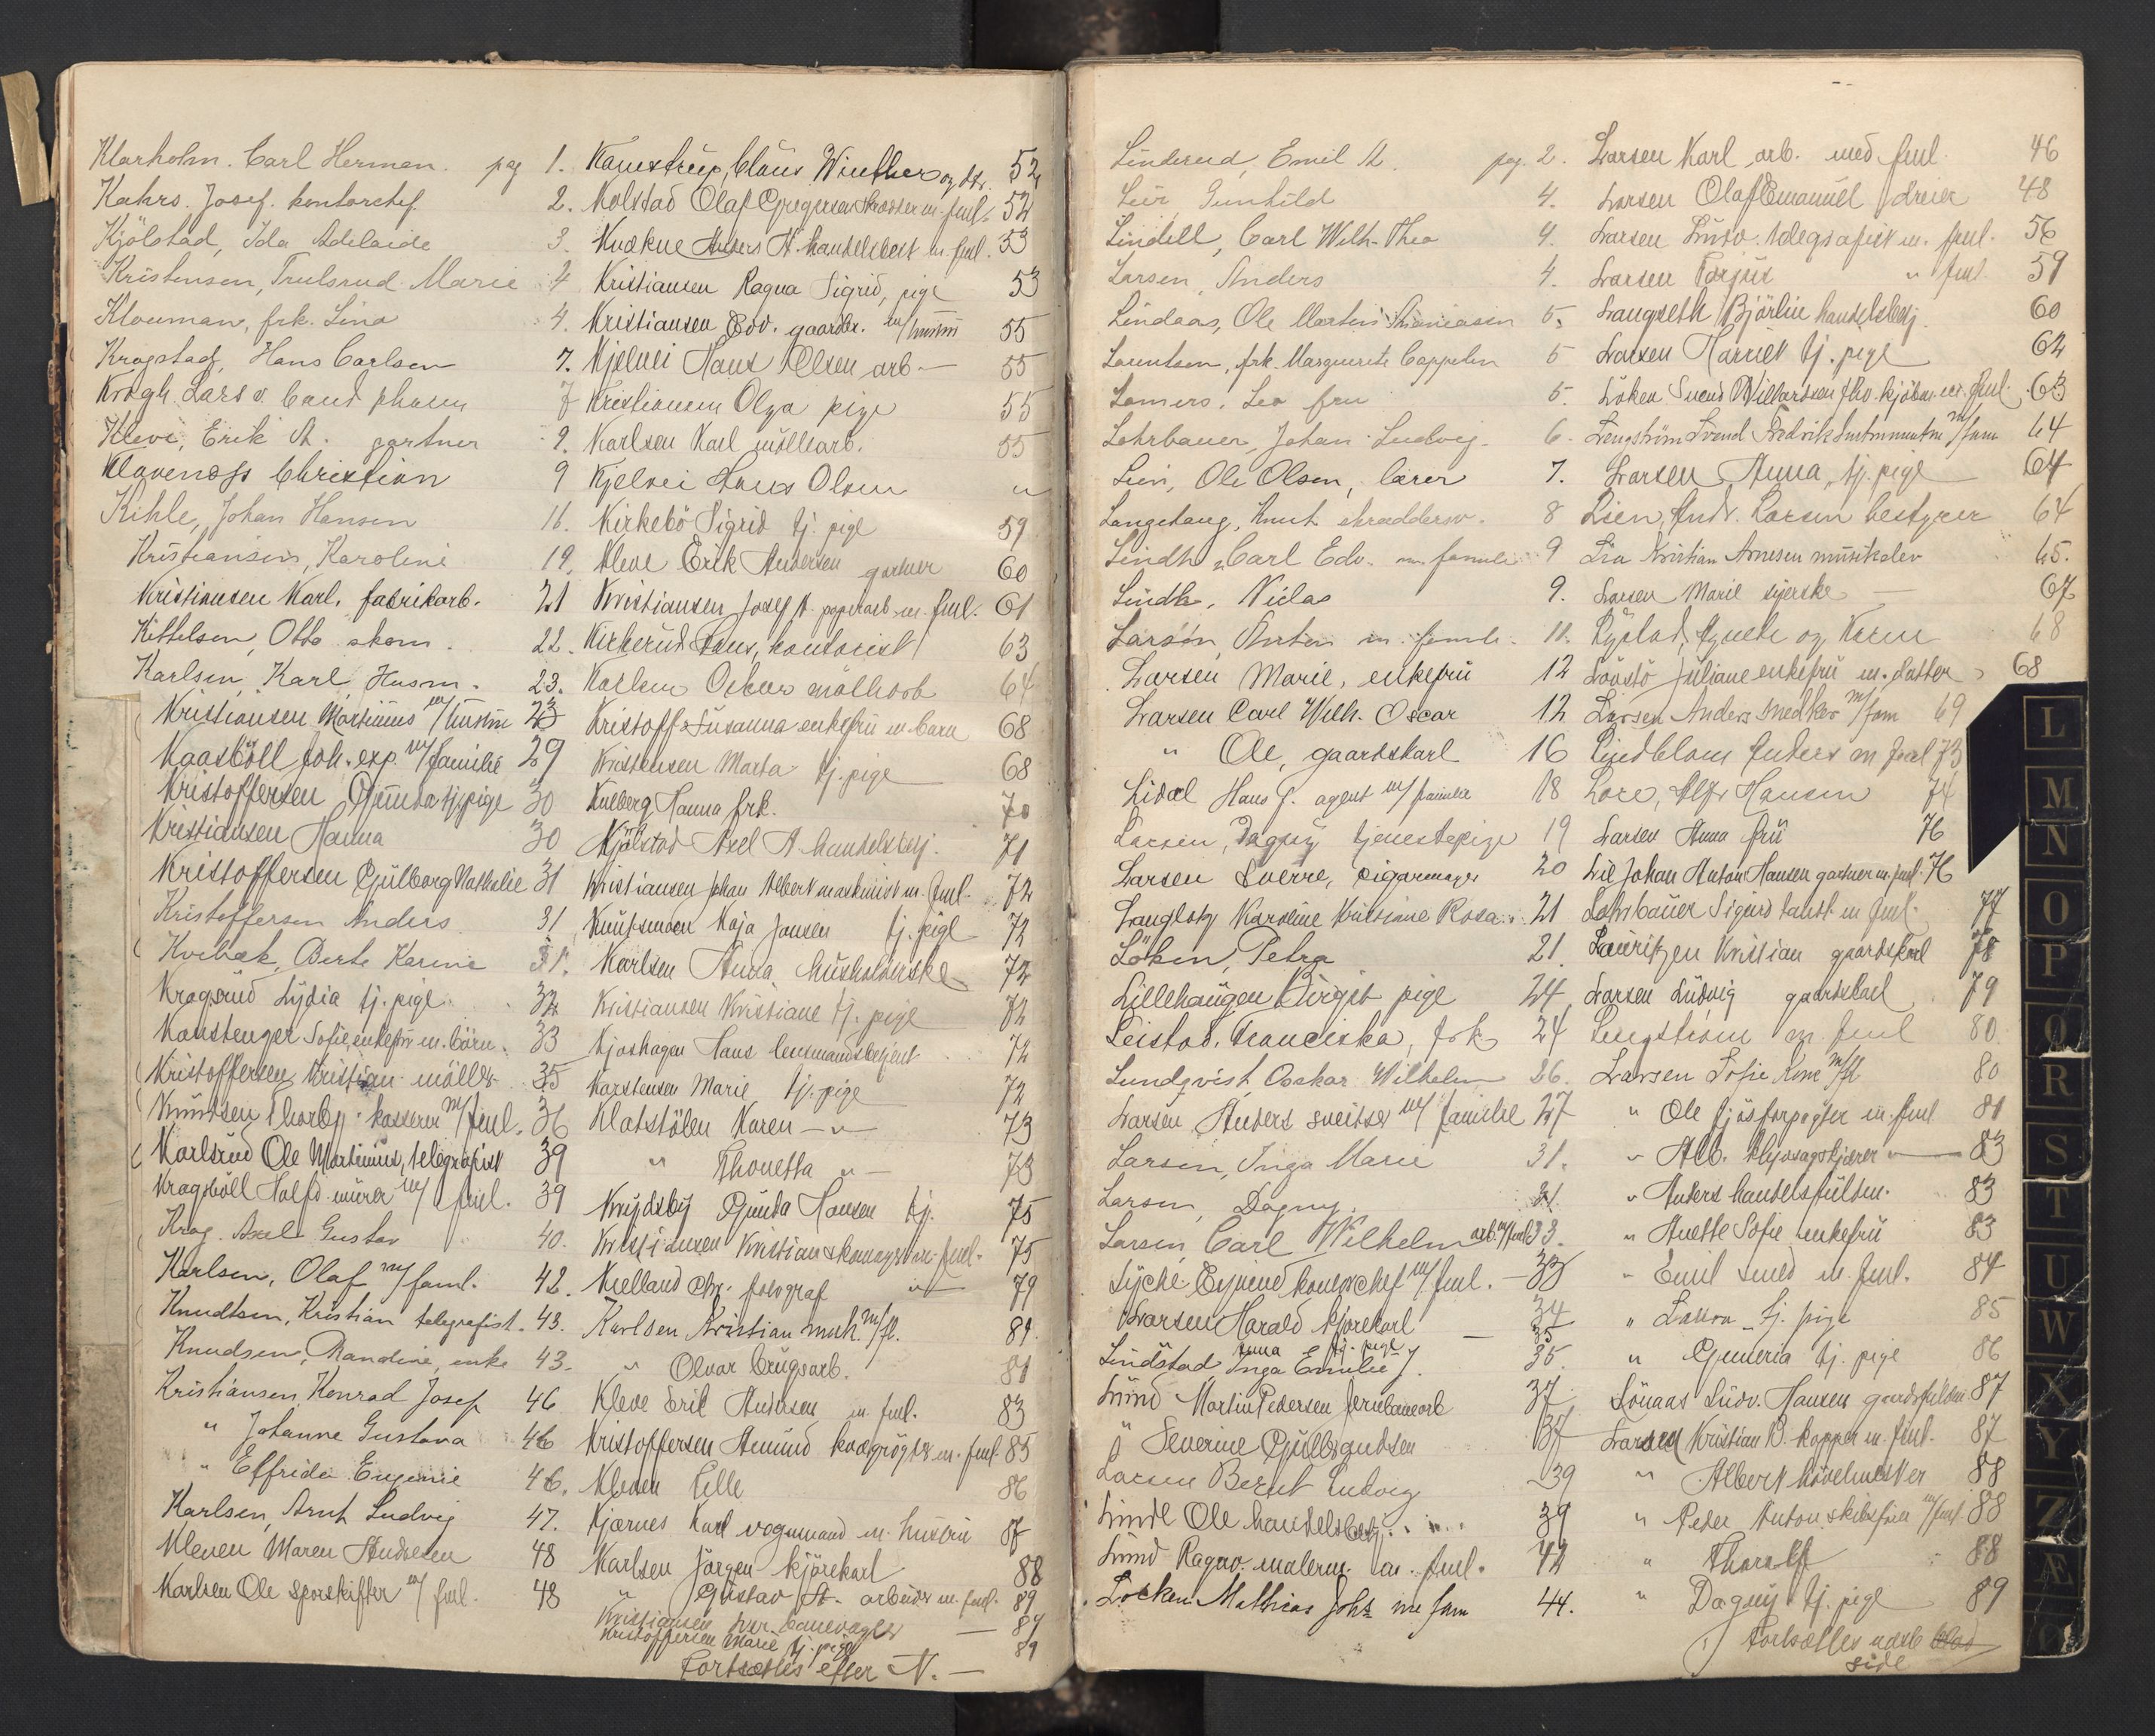 Klarholm. Carl Herman. pag 1.
Kahrs. Josef. kontorchef. 2.
Kjölstad, Ida Adelaide 3.
Kristensen, Trulsrud Marie 4
Klouman, frk. Lina 4.
Krogstad, Hans Carlsen 7.
Krogh Lars v. Cand pharm 7
Kleve, Erik A. gartner 9.
Klaveness Christian 9
Kihle, Johan Hansen 16.
Kristiansen, Karoline 19.
Kristiansen Karl. fabrikarb. 21
Kittelsen, Otto skom. 22.
Karlsen, Karl, Husm. 23.
Kristiansen Martinius m/hustru 23
Kaasböll Joh. exp. m/familie 29
Kristoffersen Gunda tj.pige 30
Kristiansen Hanna 30
Kristoffersen Gulborg Nathalie 31
Kristoffersen Anders 31
Kvebæk, Berte Karine 31.
Kragsrud Lydia tj. pige 32
Kanstenger Sofie enkefru m. börn. 33
Kristoffersen Kristian möller 35
Knudsen Thorbj. kasserer m/fml. 36
Karlsrud Ole Martinius, telegrafist 39
Kragsböll Halfd. murer m/fml. 39
Krog. Axel Gustav 40.
Karlsen, Olaf m/faml. 42.
Knudtsen, Kristian telegrafist. 43.
Knudsen, Randine, enke 43.
Kristiansen, Konrad Josef 46
" Johanne Gustava 46
" Elfrida Eugenie 46.
Karlsen, Arnt Ludvig 47.
Kleven Maren Andresen 48
Karlsen Ole sporskifter m/fml. 48
Kamstrup, Claus Winther og dtr. 52
Kolstad Olaf Gregersen m. fml. 52
Knækne Anders A. handelsbest. m. fml. 53
Kristiansen Ragna Sigrid, pige 53
Kristiansen Edv. gaardbr. m/hustru 55
Kjelvei Hans Olsen arb. — 55
Kristiansen Olga pige 55
Karlsen Karl möllearb. 55
Kjelvei Hans Olsen "
Kirkebö Sigrid tj. pige 59
Kleve Erik Andersen gartner 60
Kristiansen Josef A. papirarb. m. fml. 61
Kirkerud Hans, kontorist 63
Karlsen Oskar möllearb 64
Kristoff. Susanna enkefru m. barn 68
Kristensen Marta tj. pige 68
Kulberg Hanna frk. 70
Kjölstad Axel A. handelsbetj. 71
Kristiansen Johan Albert maskinist m. fml. 72
Knutsmoen Kaja Jansen tj. pige 72
Karlsen Anna husholderske 72
Kristiansen Kristiane tj. pige 72
Kjoshagen Hans lensmandsbetjent 72
Karstensen Marie tj. pige 72
Klatstölen Karen — " — 73
" Thonetta " — 73
Krydsby Gunda Hansen tj. 75
Kristiansen Kristian skomager m. fml. 75
Kielland Chr. fotograf " 79
Karlsen Kristian m/fl. 81.
" Olvar brugsarb. 81
Kleve Erik Andersen m. fml. 83
Kristoffersen Amund kvægrögter m. fml. 85
Kleven Lille 86
Kjærnes Karl vognmand m. hustru 87
Karlsen Jörgen kjörekarl 88
" Gustav A. arbeider m. fml. 89
Kristiansen Per banevogter — 89
Kristoffersen Marie tj. pige 89
Fortsættes efter N. —
Linderud, Emil A. pag. 2.
Lier, Gunhild 4.
Lindell, Carl Wilh. Theo 4.
Larsen, Anders 4.
Lindaas, Ole Martin 5.
Laurntsen, frk. Marguerite Cappelen 5
Lamers, Lea fru 5.
Lohrbauer, Johan Ludvig. 6.
Lien, Ole Olsen, lærer 7.
Langehaug, Knut skræddersv. 8
Lindh, Carl Edv. m. familie 9
Lindh, Niclas 9.
Larsón, Anton m. famili. 11.
Larsen Marie, enkefru 12
Larsen Carl Wilh. Oscar 12
" Ole, gaardskarl 16
Lidal Hans G. agent m/familie 18
Larsen, Dagny tjenestepige 19
Larsen Sverre, cigarmager 20
Langlotz Karoline Kristiane Rosa 21
Löken, Petra 21.
Lillehaugen Birgit pige 24
Leistad, Franciska, frk 24
Lundqvist Oskar Wilhelm 26.
Larsen Anders sveitser m/familie 27
Larsen, Inga Marie 31.
Larsen, Dagny. 31.
Larsen, Carl Wilhelm arb. m/fml 33.
Lyche Eyvind kontorchef m/fml. — 33
Larsen Harald kjörekarl — 34
Lindstad Anna tj. pige 35
Inga Emilie J. 35.
Lund Martin Pedersen jernbanearb 37
" Severine Gulbrandsen 37
Larsen Bernt Ludvig 39
Lindl Ole handelsbetj. 39
Lund Ragnv. malerm. m. fml. 42
Locken. Mathias Johs m fam 44.
Larsen Karl arb. med fml. 46
Larsen Olaf Emanuel dreier 48
Larsen Ludv. telegrafist m. fml. 56
Larsen Torjus " fml. 59
Langseth, Björlin handelsbetj. 60
Larsen Harriet tj. pige 62
Löken Svend m. fml. 63
Lengström Svend Fredrik Instrumentm m/fam 64
Larsen Anna, tj. pige 64
Lien, Andr. Larsen bestyrer 64
Lia Kristian Arnesen musikelev 65.
Larsen Marie syerske — 67
Agnethe og Karen 68
Juliane enkefru m. datter 68
Larsen Anders snedker m/fam 69
Lindblom Anders m fml 73
Hansen 74
Larsen Anna fru 76
Lie Johan Anton Hansen gartner m. fml. 76
Lohrbauer Sigurd m fml. 77
Lauritzen Kristian gaardskarl 78
Larsen Ludvig gaardskarl 79
Lengström m. fml 80
Larsen Sofie m/fl 80
" Ole fjösforpagter m. fml 81
" Alb. — 83
" Anders handelsfuldm. 83
" Anette Sofie enkefru 83
" Emil smed m. fml. 84
" Laura tj. pige 85
" Guneria tj. pige 86
Lönaas Ludv. Hansen 87
Larsen Kristian B. kopper m. fml. 87
" Albert hövelmester 88
" Peder Anton m/fml. 88
" Thoralf 88
" Dagny tj. pige 89
Fortsættes næste side
L
M
N
O
P
Q
R
S
T
U
W
X
Y
Z
Æ
Ø